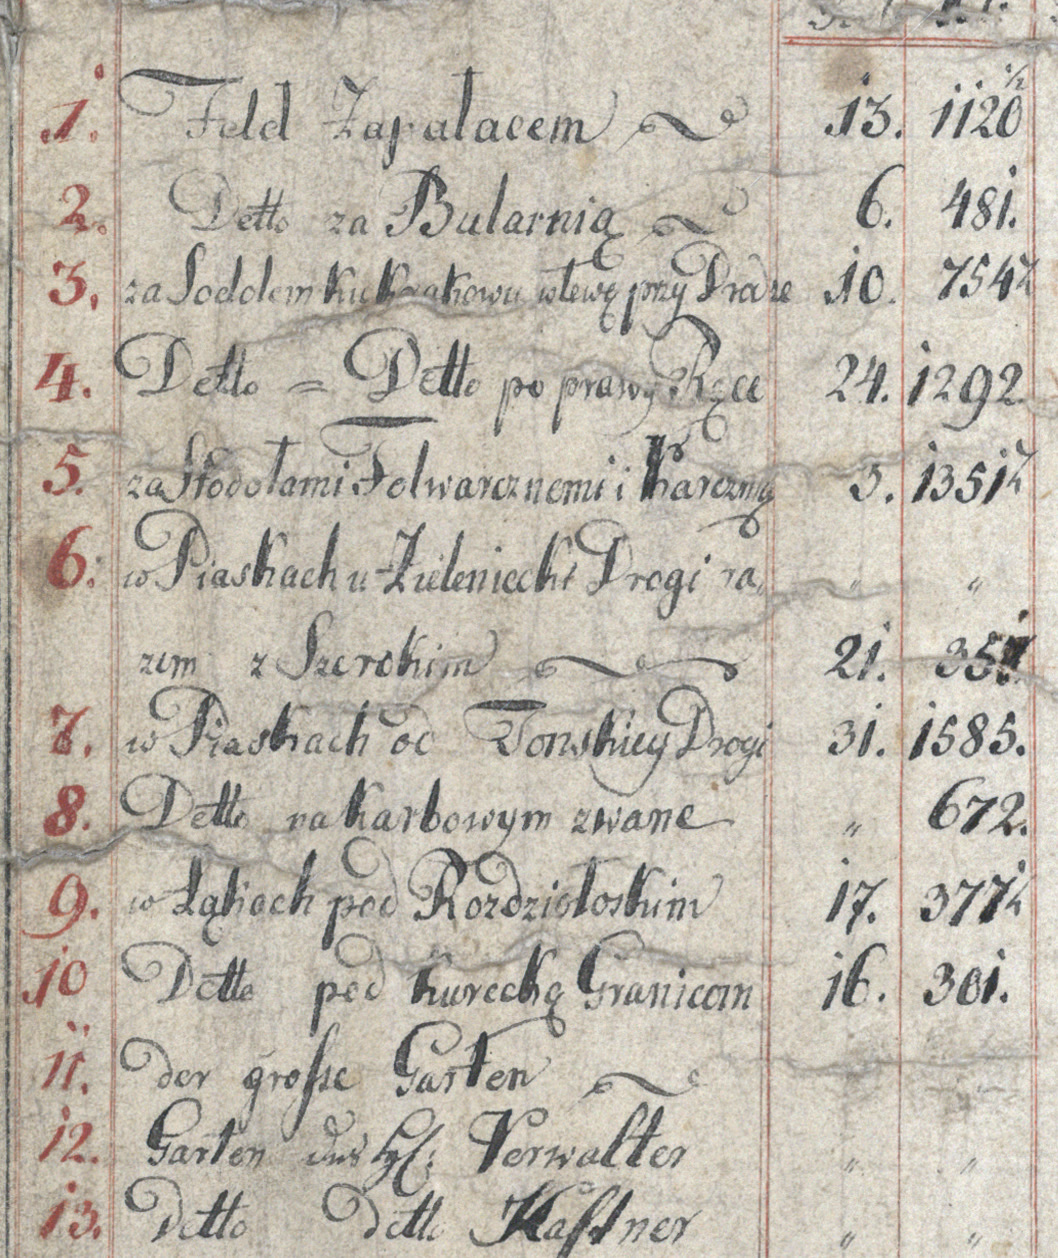 1. Feld Zapalacem 13. 1120 1/2
2. Detto za Bularnią 6. 481.
3. za Sodolem ku Krakowu wlewę przy Drodze 10. 754 1/2
4. Detto = Detto po prawy Ręce 24. 1292.
5. za Stodołami Folwarcznemi i Karczmą 3. 1351 1/2
6. w Piaskach u Zielenieckı Drogi ra, " "
zem z Szerokim 21. 351
7. w Piaskach od Tonskiey Drogi 31. 1585.
8. Detto na Karbowym zwane " 672.
9. w Łąkach pod Rozdziołoskim 17. 377 1/2
10 Detto pod Kurecką Granicom 16. 301.
11. der große Garten
12. Garten Verwalter " "
13. Detto detto Kastner " "